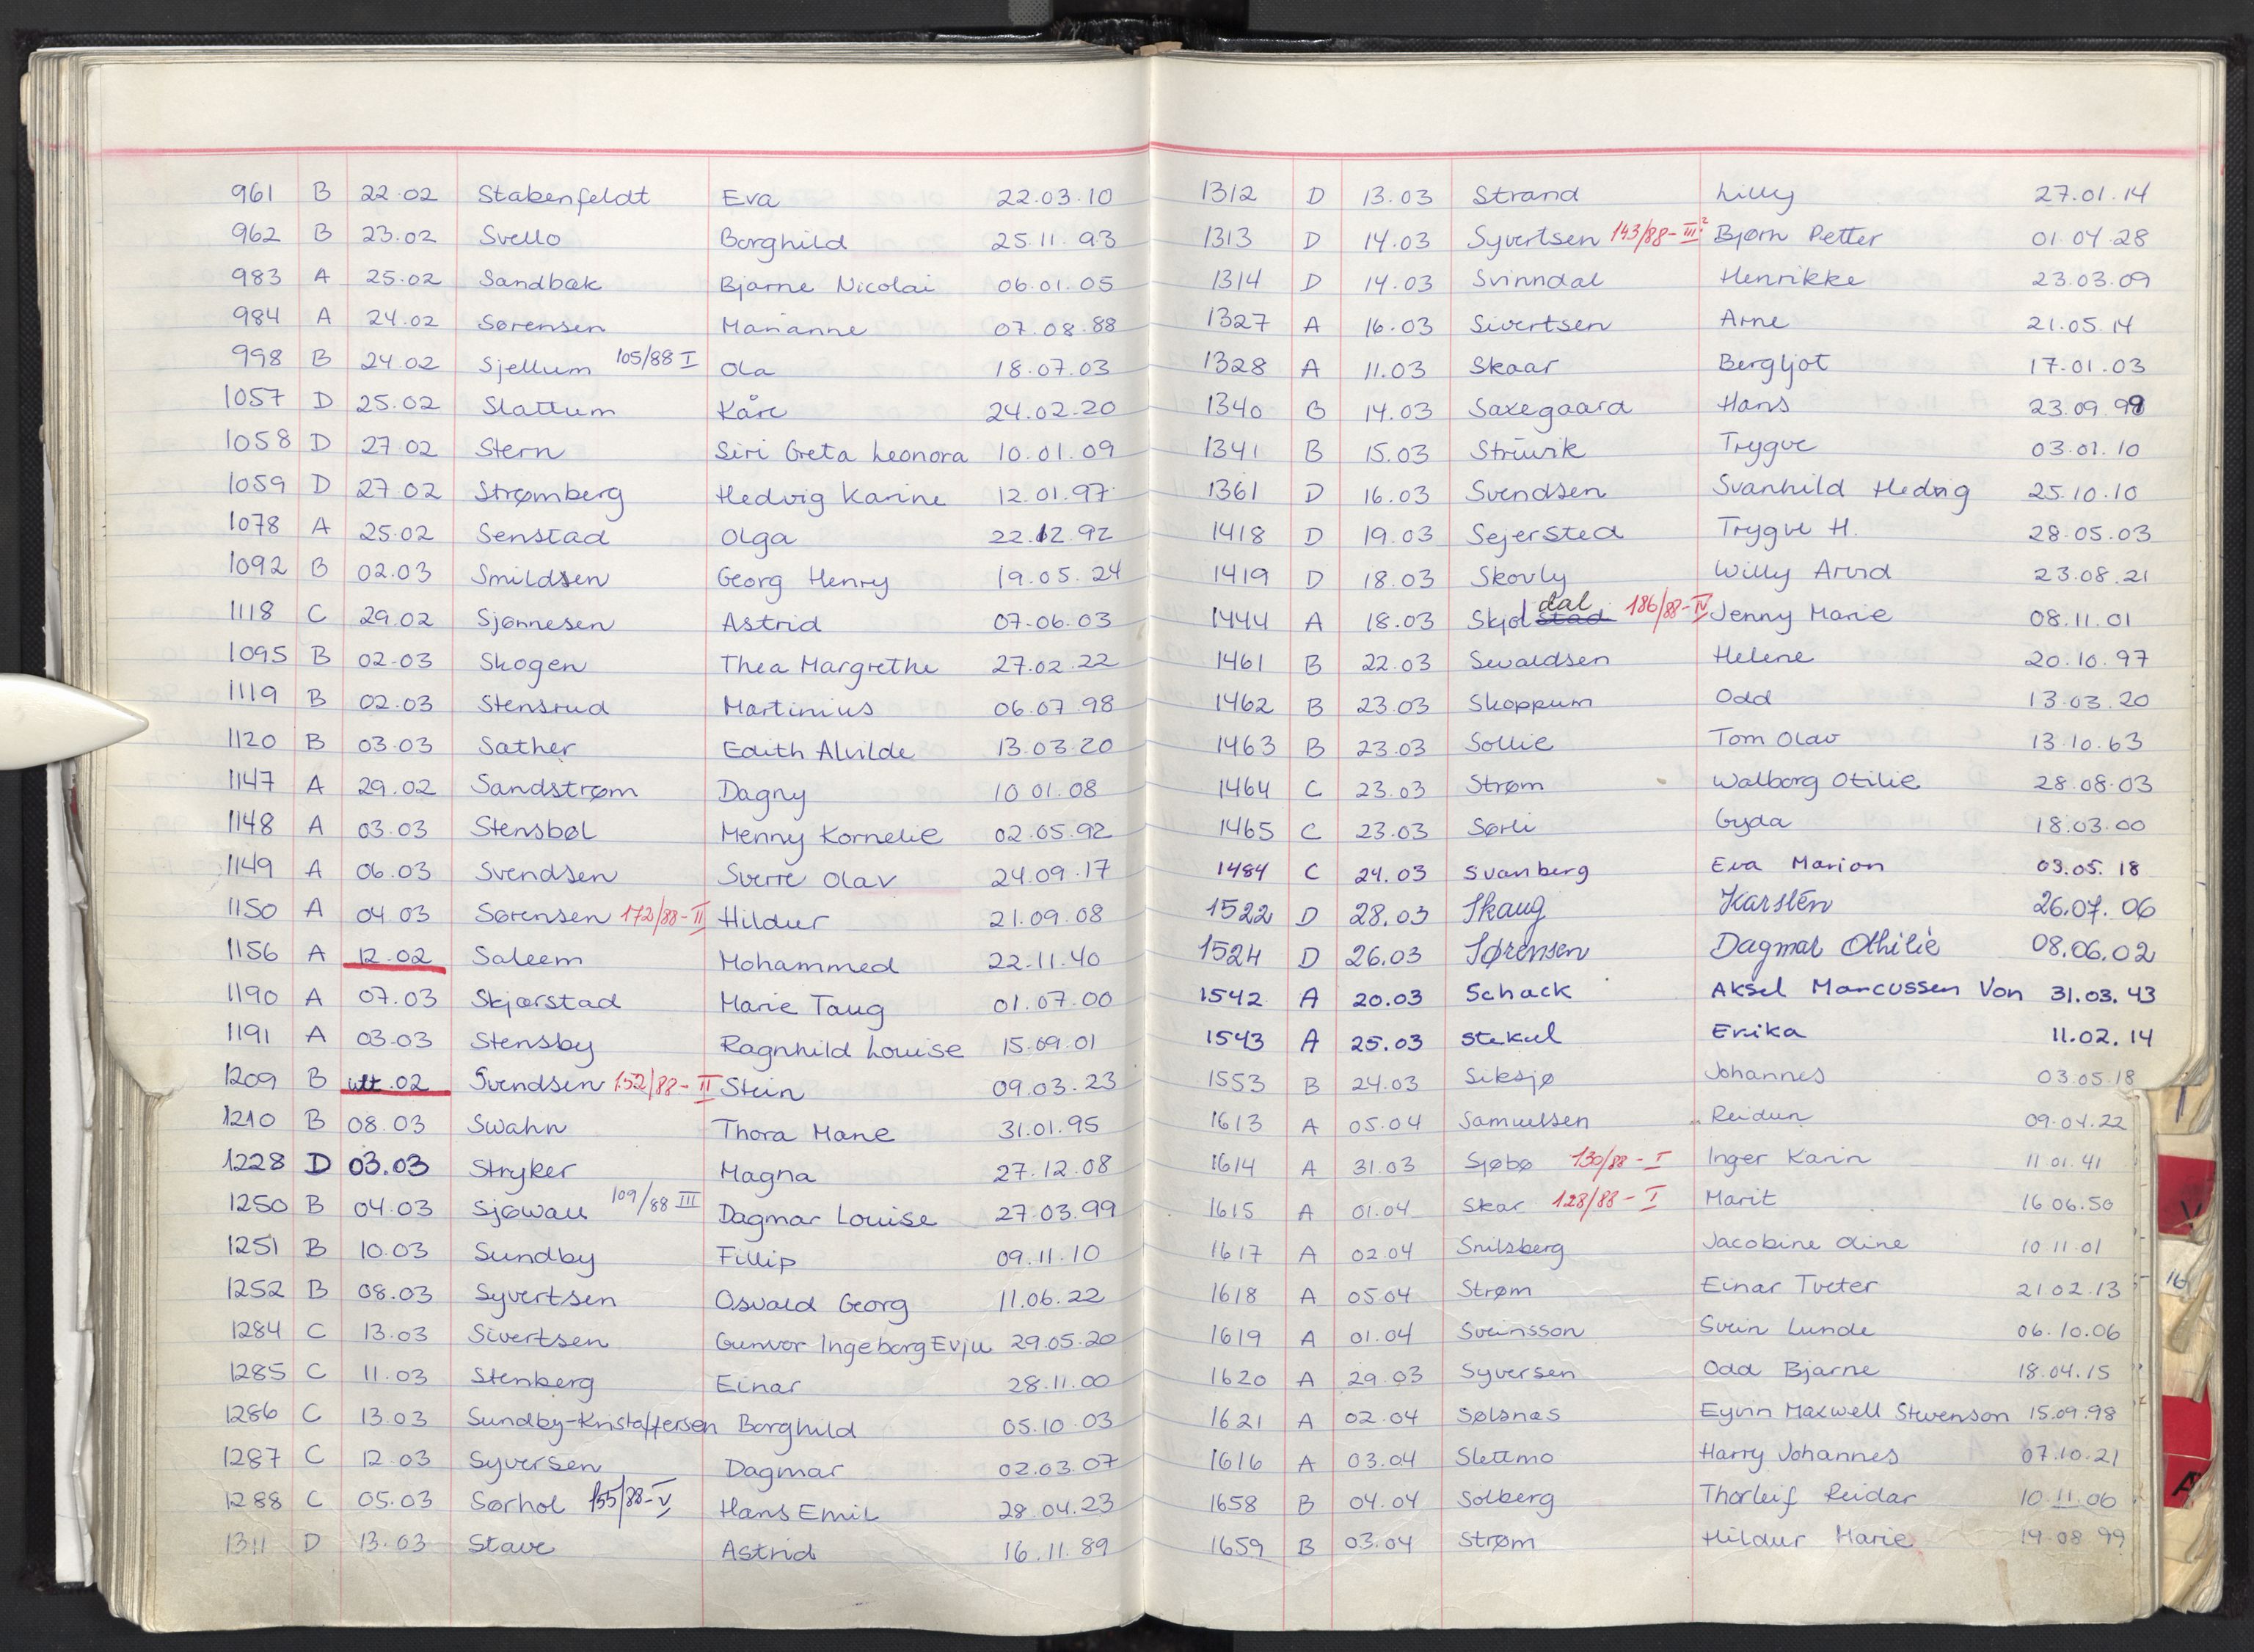 961 B 22.02 Stabenfeldt Eva 22.03.10
962 B 23.02 Svello Borghild 25.11.93
983 A 25.02 Sandbæk Bjarne Nicolai 06.01.05
984 A 24.02 Sørensen Marianne 07.08.88
998 B 24.02 Sjellum 105/88 I Ola 18.07.03
1057 D 25.02 Slattum Kåre 24.02.20
1058 D 27.02 Stern Siri Greta Leonora 10.01.09
1059 D 27.02 Strømberg Hedvig Karine 12.01.97
1078 A 25.02 Senstad Olga 22.12.92
1092 B 02.03 Smildsen Georg Henry 19.05.24
1118 C 29.02 Sjønnesen Astrid 07.06.03
1095 B 02.03 Skogen Thea Margrethe 27.02.22
1119 B 02.03 Stensrud Martinius 06.07.98
1120 B 03.03 Sather Edith Alvilde 13.03.20
1147 A 29.02 Sandstrøm Dagny 10.01.08
1148 A 03.03 Stensbøl Henny Kornelie 02.05.92
1149 A 06.03 Svendsen Sverre Olav 24.09.17
1150 A 04.03 Sørensen 172/88-II Hildur 21.09.08
1156 A 12.02 Saleem Mohammed 22.11.40
1190 A 07.03 Skjørstad Marie Taug 01.07.00
1191 A 03.03 Stensby Ragnhild Louise 15.09.01
1209 B utt.02 Svendsen 152/88-II Stein 09.03.23
1210 B 08.03 Swahn Thora Marie 31.01.95
1228 D 03.03 Stryker Magna 27.12.08
1250 B 04.03 Sjøwall 109/88 III Dagmar Louise 27.03.99
1251 B 10.03 Sundby Fillip 09.11.10
1252 B 08.03 Syvertsen Osvald Georg 11.06.22
1284 C 13.03 Sivertsen Gunvor Ingeborg Evju 29.05.20
1285 C 11.03 Stenberg Einar 28.11.00
1286 C 13.03 Sundby-Kristoffersen Borghild 05.10.03
1287 C 12.03 Syversen Dagmar 02.03.07
1288 C 05.03 Sørhol 155/88-V Hans Emil 28.04.23
1311 D 13.03 Stave Astrid 16.11.89
1312 D 13.03 Strand Lilly 27.01.14
1313 D 14.03 Syvertsen 143/88-III² Bjørn Petter 01.04.28
1314 D 14.03 Svinndal Henrikke 23.03.09
1327 A 16.03 Sivertsen Arne 21.05.14
1328 A 11.03 Skaar Bergljot 17.01.03
1340 B 14.03 Saxegaard Hans 23.09.99
1341 B 15.03 Strüvik Trygve 03.01.10
1361 D 16.03 Svendsen Svanhild Hedvig 25.10.10
1418 D 19.03 Sejersted Trygve H. 28.05.03
1419 D 18.03 Skovly Willy Arvid 23.08.21
1444 A 18.03 Skjolstad dal 186/88-IV Jenny Marie 08.11.01
1461 B 22.03 Sevaldsen Helene 20.10.97
1462 B 23.03 Skoppum Odd 13.03.20
1463 B 23.03 Sollie Tom Olav 13.10.63
1464 C 23.03 Strøm Walborg Otilie 28.08.03
1465 C 23.03 Sørli Gyda 18.03.00
1484 C 24.03 Svanberg Eva Marion 03.05.18
1522 D 28.03 Skaug Karstén 26.07.06
1524 D 26.03 Sørensen Dagmar Othilie 08.06.02
1542 A 20.03 Schack Aksel Marcussen Von 31.03.43
1543 A 25.03 Stekul Erika 11.02.14
1553 B 24.03 Siksjø Johannes 03.05.18
1613 A 05.04 Samuelsen Reidun 09.04.22
1614 A 31.03 Sjøbø 130/88-I Inger Karin 11.01.41
1615 A 01.04 Skar 128/88-I Marit 16.06.50
1617 A 02.04 Snilsberg Jacobine Oline 10.11.01
1618 A 05.04 Strøm Einar Tveter 21.02.13
1619 A 01.04 Sveinsson Svein Lunde 06.10.06
1620 A 29.03 Syversen Odd Bjarne 18.04.15
1621 A 02.04 Sølsnæs Eyvin Maxwell Stevenson 15.09.98
1616 A 03.04 Slettmo Harry Johannes 07.10.21
1658 B 04.04 Solberg Thorleif Reidar 10.11.06
1659 B 03.04 Strøm Hildur Marie 19.08.99